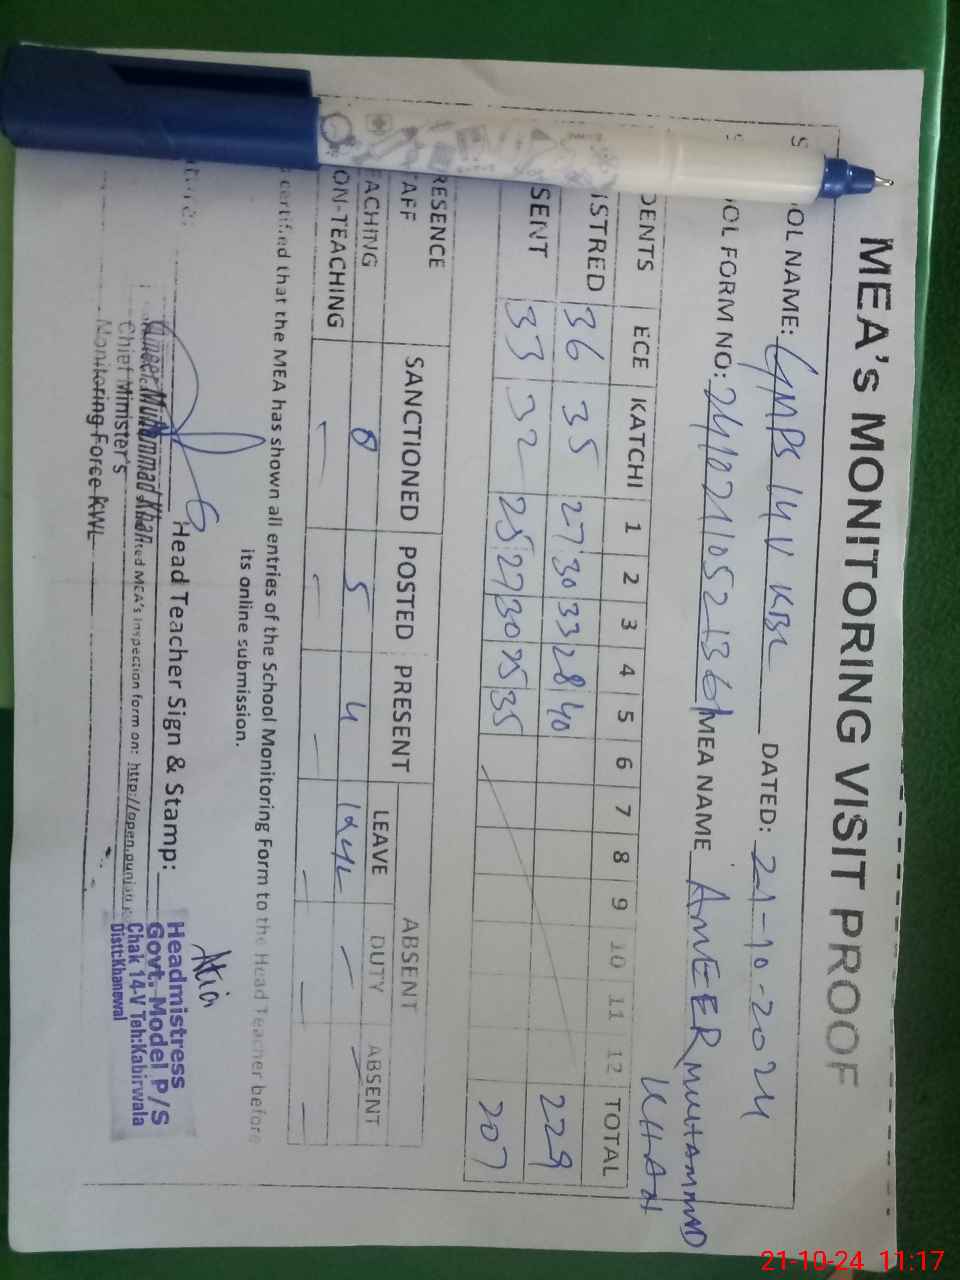 MEA's MONITORING VISIT PROOF
OOL NAME: GMPS 14V KBL DATED: 21-10-2024
OOL FORM NO: MEA NAME AMEER MUHAMMAD
KHAN
DENTS ECE KATCHI 1 2 3 4 5 6 7 8 9 10 11 12 TOTAL
ISTRED 36 35 27 30 33 28 40 229
SENT 33 32 25 27 30 25 35 207
RESENCE SANCTIONED POSTED PRESENT ABSENT
AFF LEAVE DUTY ABSENT
ACHING 0 5 4 —
ON-TEACHING — — — — — —
certified that the MEA has shown all entries of the School Monitoring Form to the Head Teacher before
its online submission.
Head Teacher Sign & Stamp:
Ameer Muhammad Khan
Chief Minister's
Monitoring Force KWL
MEA's inspection form on: http://open.punjab
Headmistress
Govt. Model P/S
Chak 14-V Teh:Kabirwala
Distt:Khanewal
21-10-24 11:17